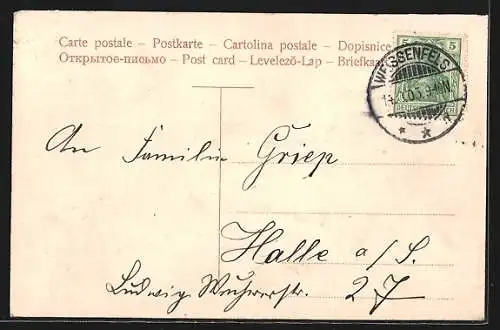 Carte postale – Postkarte – Cartolina postale – Dopisnice
Открытое-письмо – Post card – Levelező-Lap – Briefka
5 5
WEISSENFELS
An Familie Griep
Halle a/S.
Ludwig Wuchererstr. 27